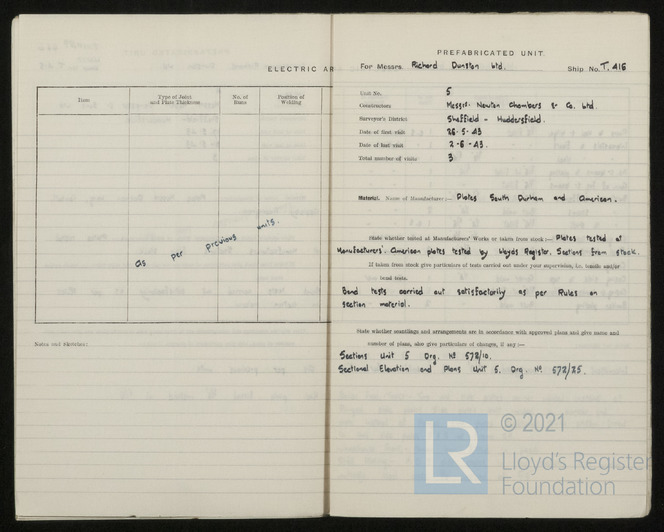 ELECTRIC AR
Item
Type of Joint
and Plate Thickness
No. of
Runs
Position of
Welding
as per previous units.
Notes and Sketches:
PREFABRICATED UNIT.
For Messrs. Richard Dunston Ltd. Ship No. T. 416
Unit No. 5
Constructors Messrs. Newton Chambers & Co. Ltd.
Surveyor's District Sheffield - Huddersfield.
Date of first visit 26-5-43
Date of last visit 2-6-43.
Total number of visits 3
Material. Name of Manufacturer:— Plates South Durham and American.
State whether tested at Manufacturers' Works or taken from stock:— Plates tested at
Manufacturers'. American plates tested by Lloyds Register. Sections from stock.
If taken from stock give particulars of tests carried out under your supervision, i.e. tensile and/or
bend tests.
Bend tests carried out satisfactorily as per Rules on
section material.
State whether scantlings and arrangements are in accordance with approved plans and give name and
number of plans, also give particulars of changes, if any:—
Sections Unit 5 Drg. No 572/10.
Sectional Elevation and Plans Unit 5. Drg. No. 572/25.
LR
© 2021
Lloyd's Register
Foundation